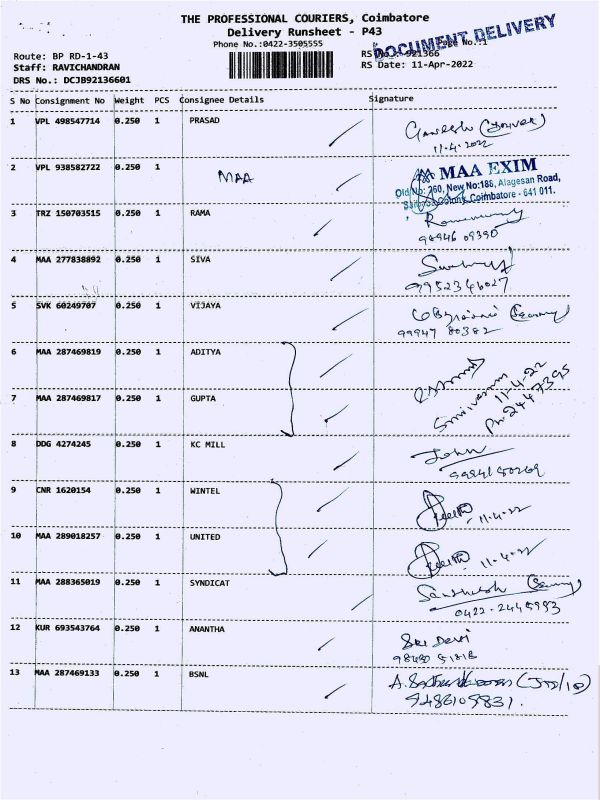 THE PROFESSIONAL COURIERS, Coimbatore
Delivery Runsheet - P43
Phone No.:0422-3505555
Page No.:1
DOCUMENT DELIVERY
Route: BP RD-1-43
RS No.: 921366
Staff: RAVICHANDRAN
RS Date: 11-Apr-2022
DRS No.: DCJB92136601
S No Consignment No Weight PCS Consignee Details Signature
1 VPL 498547714 0.250 1 PRASAD
Ganesh (Driver)
11-4-2022
2 VPL 938582722 0.250 1 MAA
MAA EXIM
Old No: 260, New No:186, Alagesan Road,
Colony, Coimbatore - 641 011.
3 TRZ 150703515 0.250 1 RAMA
98946 09390
4 MAA 277838892 0.250 1 SIVA
9952346027
5 SVK 60249707 0.250 1 VIJAYA
99947 80382
6 MAA 287469819 0.250 1 ADITYA
7 MAA 287469817 0.250 1 GUPTA
Srinivasan
11-4-22
Ph: 2447395
8 DDG 4274245 0.250 1 KC MILL
John
9 CNR 1620154 0.250 1 WINTEL
11-4-22
10 MAA 289018257 0.250 1 UNITED
11-4-22
11 MAA 288365019 0.250 1 SYNDICAT
Santhosh
0422-2445993
12 KUR 693543764 0.250 1 ANANTHA
Sri Devi
13 MAA 287469133 0.250 1 BSNL
9486105831.